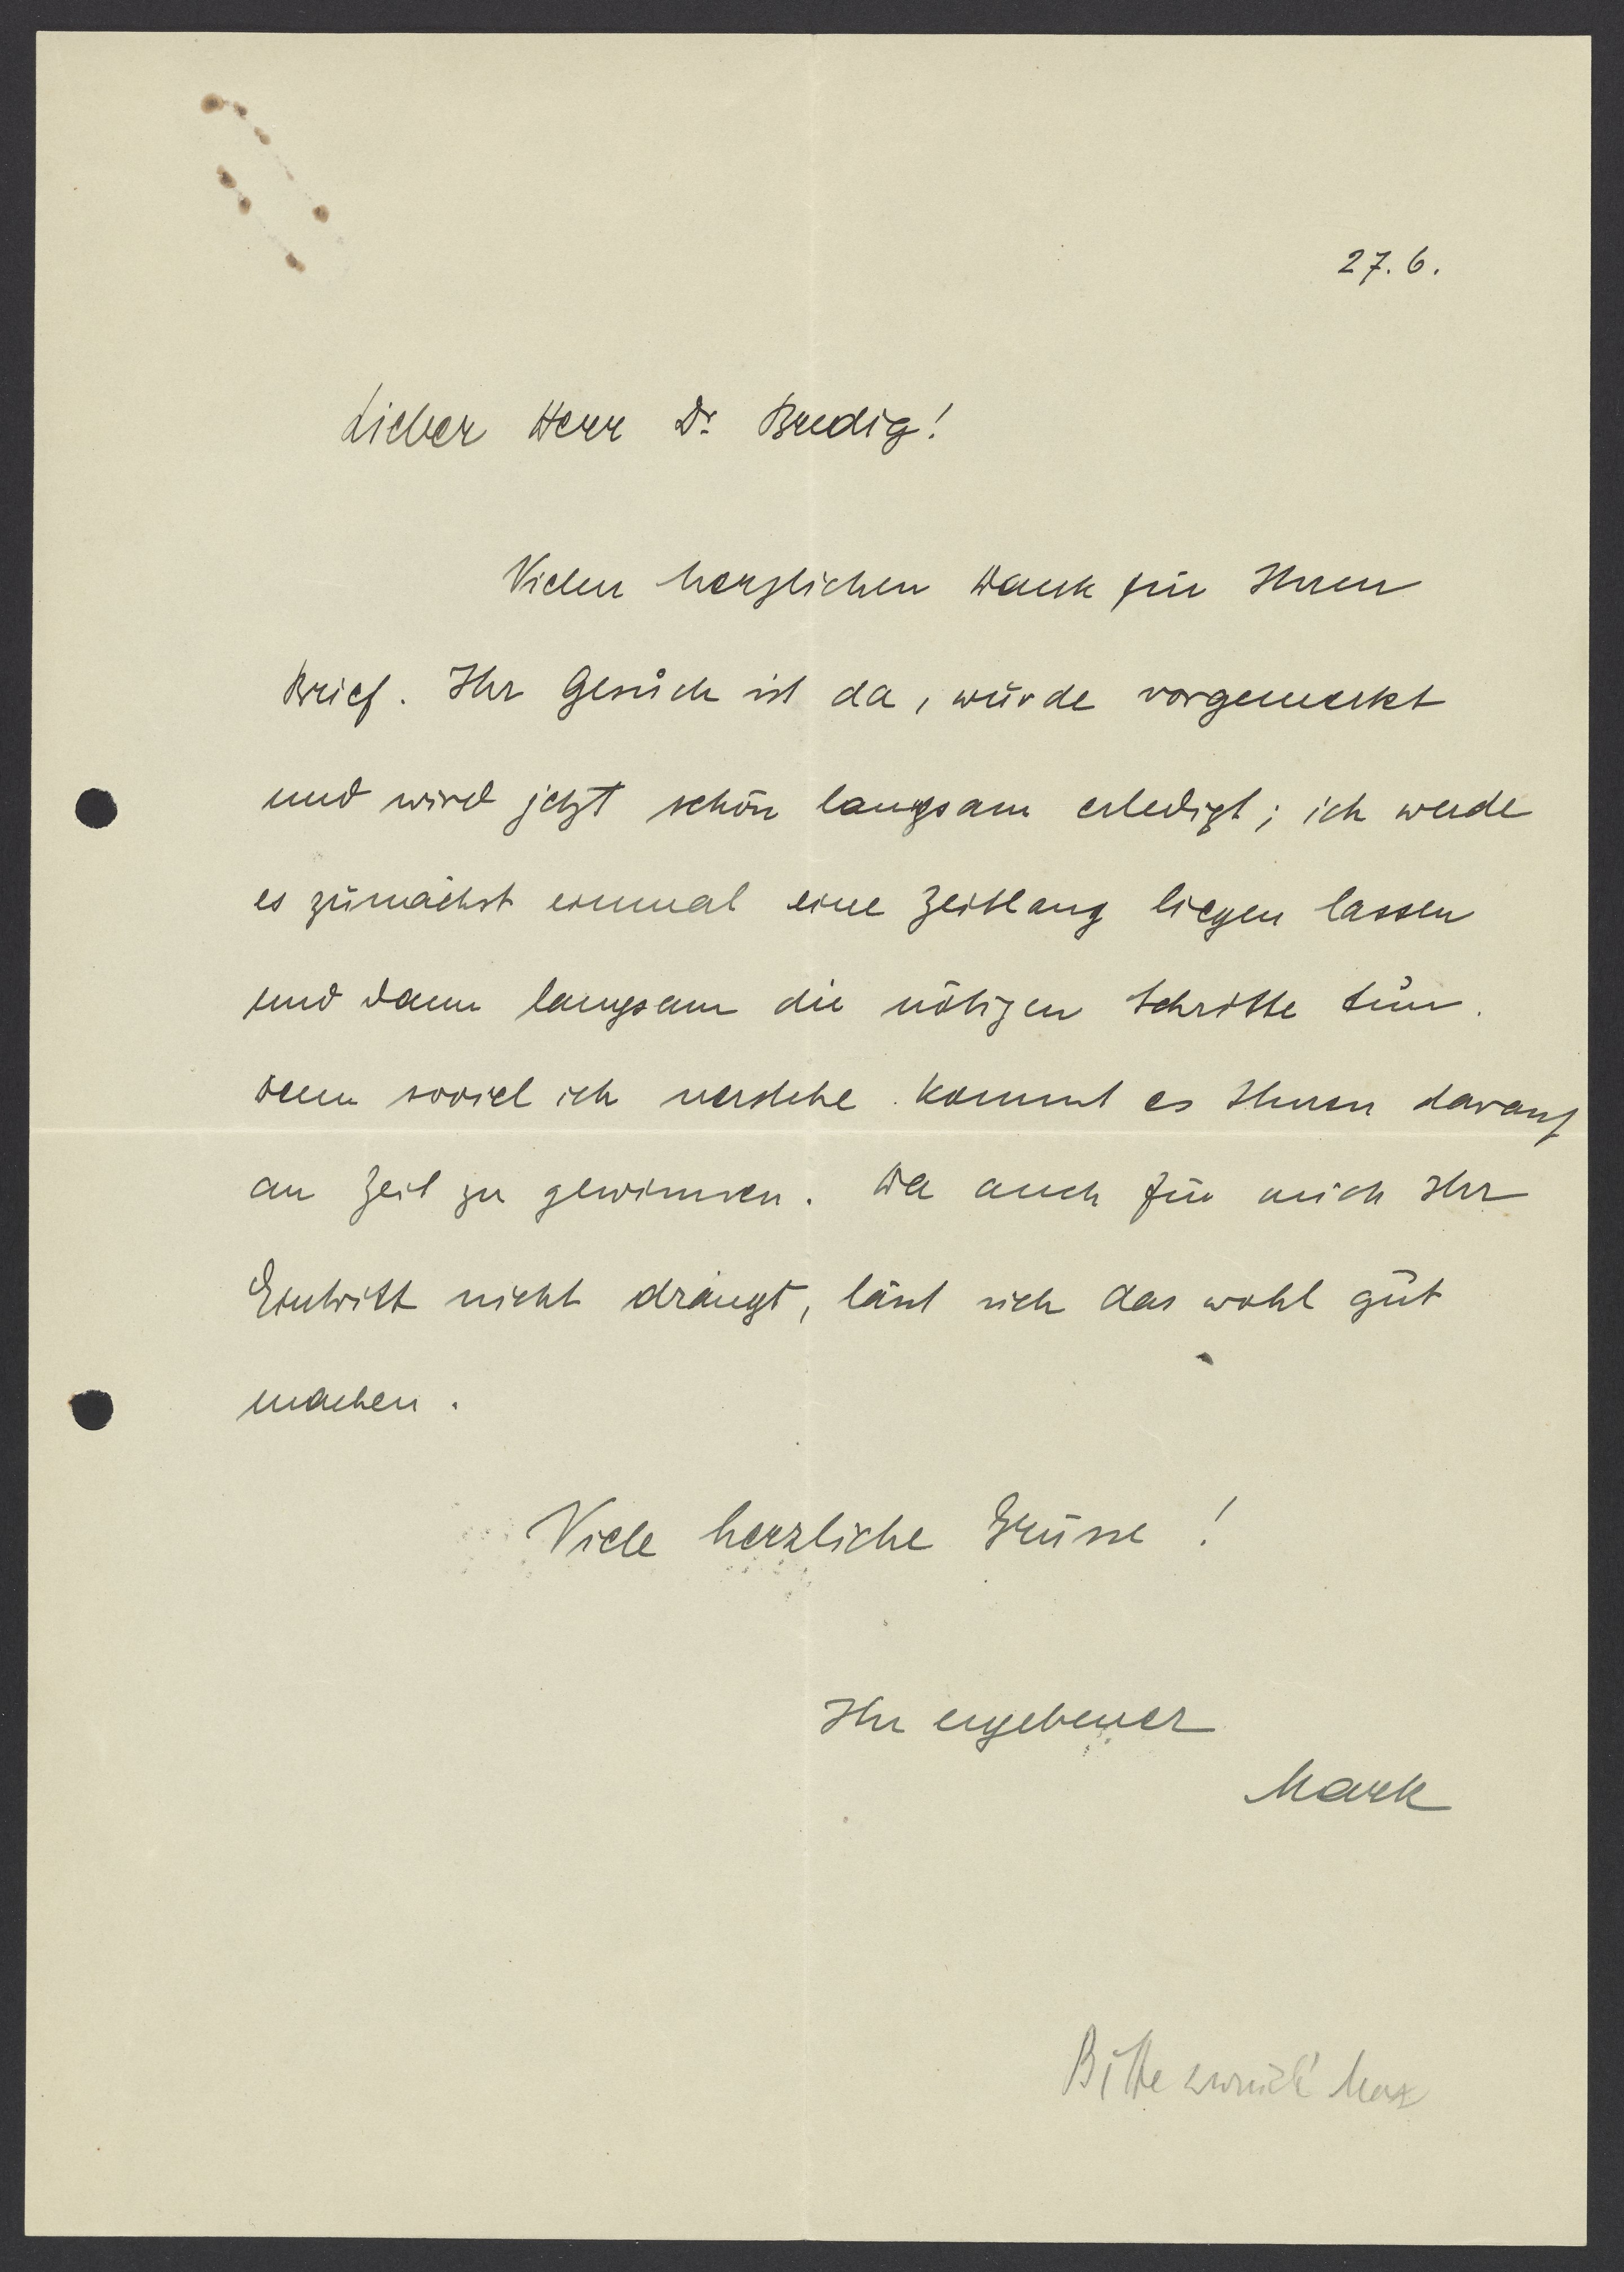 27. 6.
Lieber Herr Dr. Bredig!
Vielen herzlichen Dank für Ihren
Brief. Ihr Gesuch ist da, wurde vorgemerkt
und wird jetzt schön langsam erledigt; ich werde
es zunächst einmal eine Zeitlang liegen lassen
und dann langsam die nötigen Schritte tun.
Denn soviel ich verstehe kommt es Ihnen darauf
an Zeit zu gewinnen. Da auch für mich Ihr
Eintritt nicht drängt, lässt sich das wohl gut
machen.
Viele herzliche Grüsse!
Ihr ergebener
Mark
Bitte zurück Max